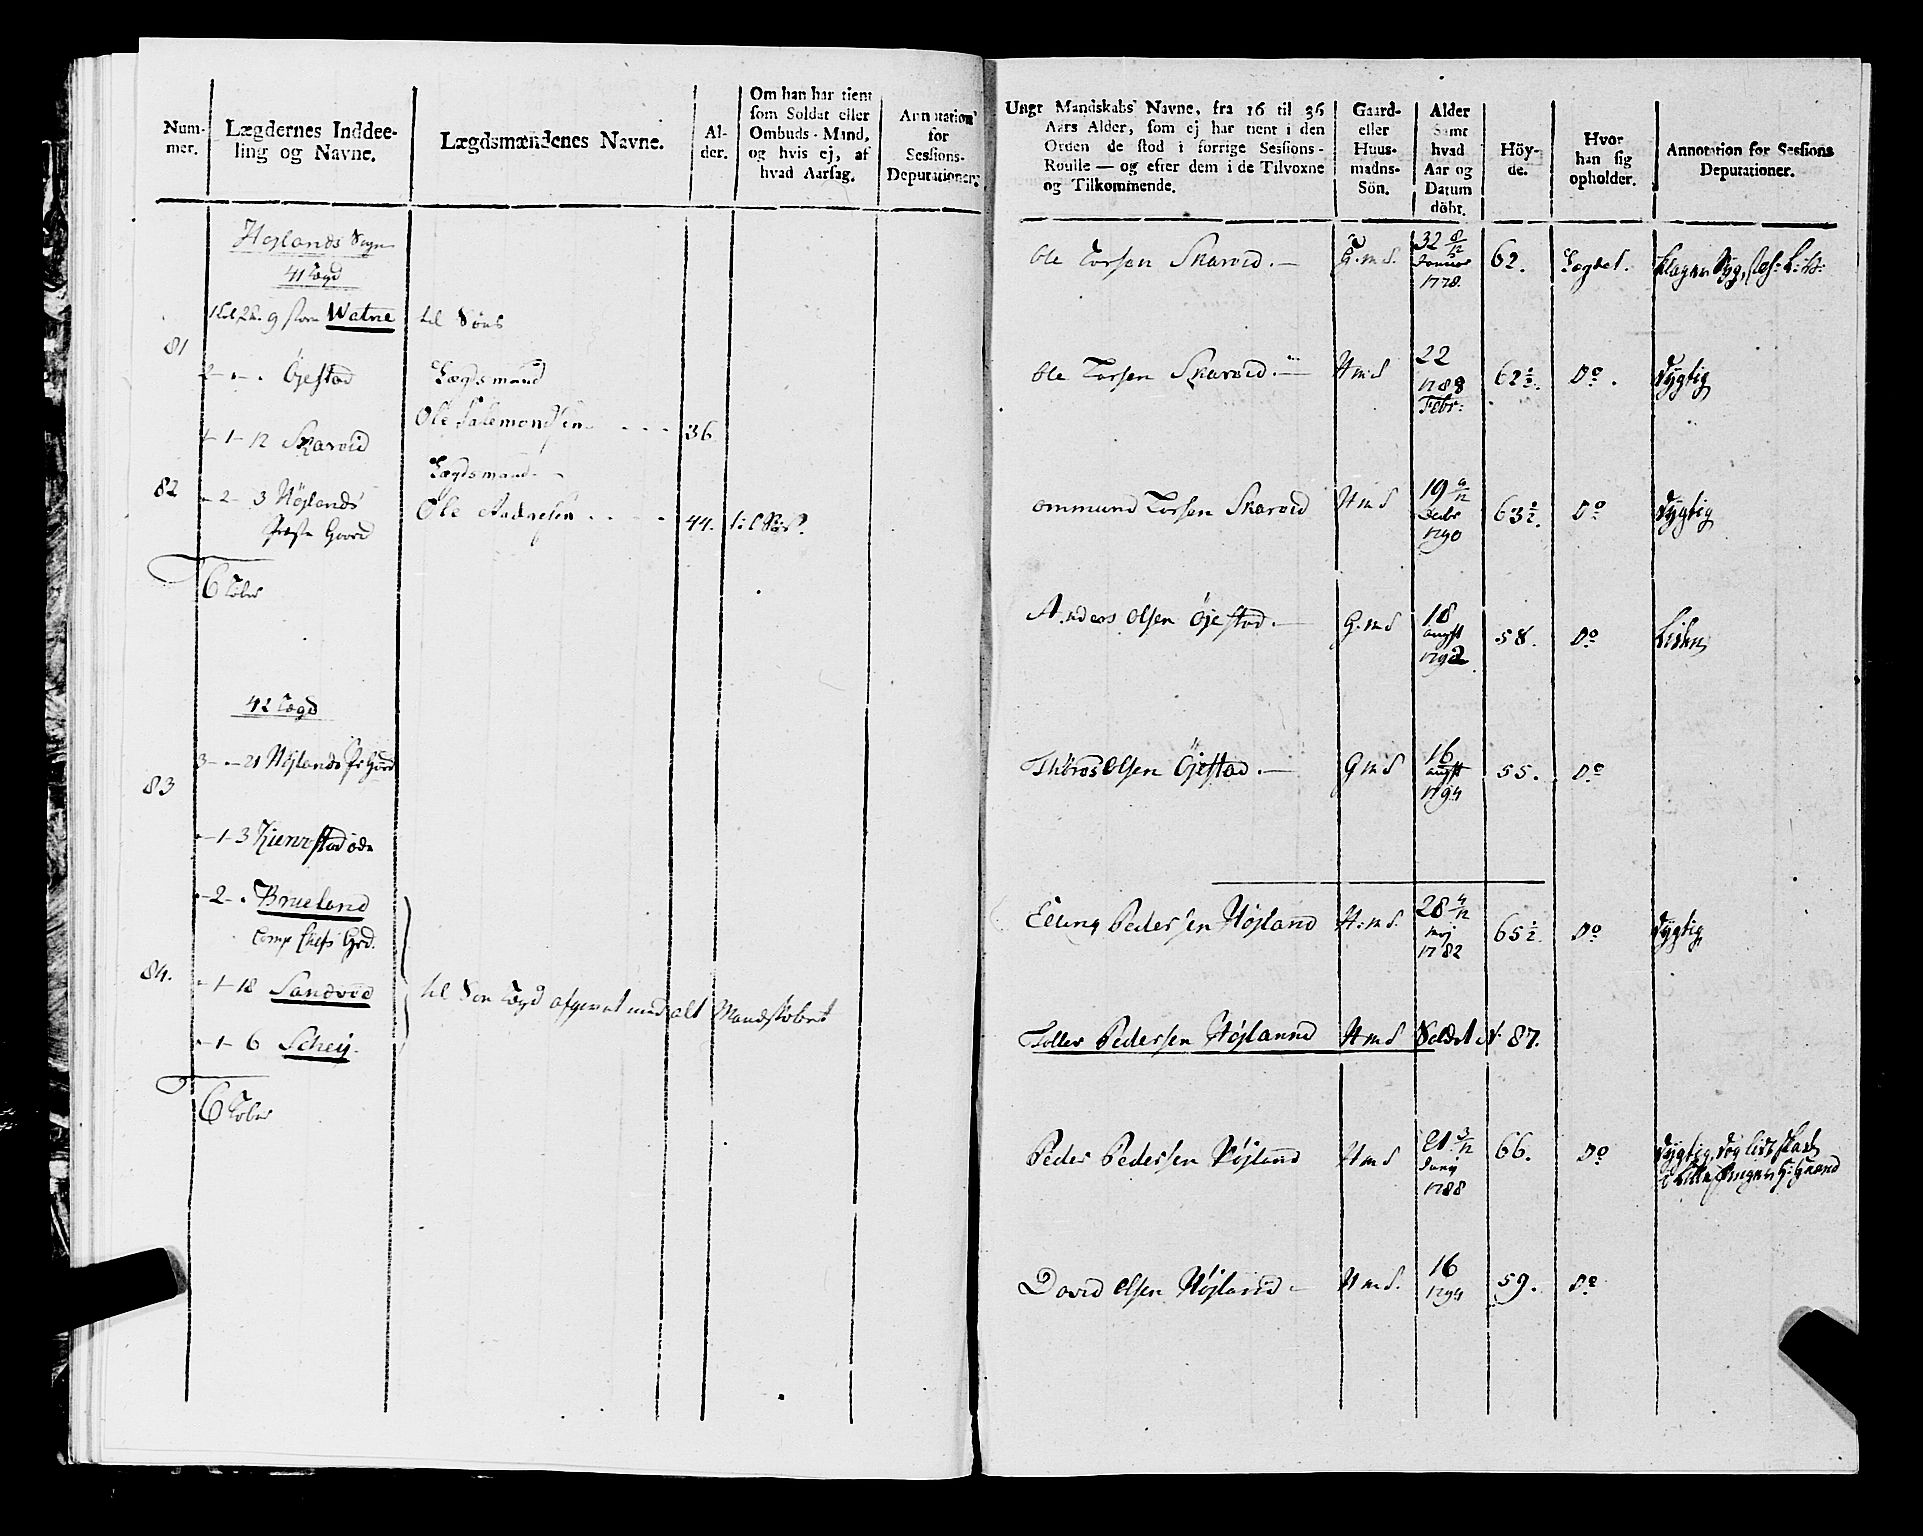 Num-
mer.
Lægdernes Inddee-
ling og Navne.
Lægdsmændenes Navne.
Al-
der.
Om han har tient
som Soldat eller
Ombuds-Mand,
og hvis ej, af
hvad Aarsag.
Annotation
for
Sessions-
Deputationen.
Höjlands Sogn
41 Lægd
9 Watne
til Söes
81
2 - - . Öjestad
Lægdsmand
Ole Salemonsen
36
- 1 - 12 Skarvid
Lægdsmand
82
- 2 - 3 Höjlands
Præste Gaard
Ole Aadnesen
44.
til Söes
6
42 Lægd
3 - - 21 Höjlands Pr Gård
83
- 1 - 3 Kienestad öde
- 2 - . Brueland
Comp Chefs Grd.
84.
- 1 - 18 Sandved
til Söe Lægd afgivet med alt Mandskabet
- 1 - 6 Schey.
6
Ungt Mandskabs Navne, fra 16 til 36
Aars Alder, som ej har tient i den
Orden de stod i forrige Sessions-
Roulle — og efter dem i de Tilvoxne
og Tilkommende.
Gaard-
eller
Huus-
madns-
Sön.
Alder
samt
hvad
Aar og
Datum
döbt.
Höy-
de.
Hvor
han sig
opholder.
Annotation for Sessions
Deputationer.
Ole Torsen Skarvid. — G. m S. 32 8/12 Januar 1778. 62. Lægdet. klager Syg,
Ole Torsen Skarvid. — H m S 22 1788 Febr: 62½. Do. dygtig
Ommund Torsen Skarvid H m S 19 9/12 Decbr 1790 63½. Do dygtig
Anders Olsen Öjestad. — G. m S 18 augst 1792 58. Do Liden
Olsen Öjestad. — G m S 16 augst 1794 55. Do
Elling Pedersen Höjland H. m S. 28 4/12 Maj 1782 65½. Do dygtig
Tollev Pedersen Höjland H m S Soldat N 87.
Peder Pedersen Höjland H m S 21 3/12 Junij 1788 66. Do dygtig, dog lidt skade
David Olsen Höjland — H m S. 16 1794 59. Do